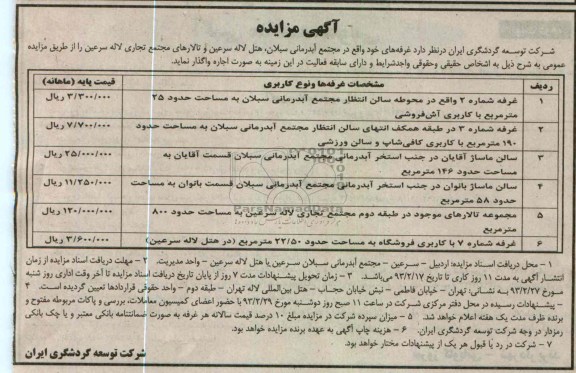 آگهی مزایده
شرکت توسعه گردشگری ایران درنظر دارد غرفه‌های خود واقع در مجتمع آبدرمانی سبلان، هتل لاله سرعین و تالارهای مجتمع تجاری لاله سرعین را از طریق مزایده
عمومی به شرح ذیل به اشخاص حقیقی وحقوقی واجدشرایط و دارای سابقه فعالیت در این زمینه به صورت اجاره واگذار نماید.
ردیف مشخصات غرفه‌ها ونوع کاربری قیمت پایه (ماهانه)
۱ غرفه شماره ۲ واقع در محوطه سالن انتظار مجتمع آبدرمانی سبلان به مساحت حدود ۲۵ ۳/۳۰۰/۰۰۰ ریال
مترمربع با کاربری آش‌فروشی
۲ غرفه شماره ۳ در طبقه همکف انتهای سالن انتظار مجتمع آبدرمانی سبلان به مساحت حدود ۷/۷۰۰/۰۰۰ ریال
۱۹۰ مترمربع با کاربری کافی‌شاپ و سالن ورزشی
۳ سالن ماساژ آقایان در جنب استخر آبدرمانی مجتمع آبدرمانی سبلان قسمت آقایان به ۲۵/۰۰۰/۰۰۰ ریال
مساحت حدود ۱۴۶ مترمربع
۴ سالن ماساژ بانوان در جنب استخر آبدرمانی مجتمع آبدرمانی سبلان قسمت بانوان به مساحت ۱۱/۲۵۰/۰۰۰ ریال
حدود ۵۸ مترمربع
۵ مجموعه تالارهای موجود در طبقه دوم مجتمع تجاری لاله سرعین به مساحت حدود ۸۰۰ ۱۲۰/۰۰۰/۰۰۰ ریال
مترمربع
۶ غرفه شماره ۷ با کاربری فروشگاه به مساحت حدود ۲۲/۵۰ مترمربع (در هتل لاله سرعین) ۳/۶۰۰/۰۰۰ ریال
۱ - محل دریافت اسناد مزایده: اردبیل - سرعین - مجتمع آبدرمانی سبلان سرعین یا هتل لاله سرعین - واحد مدیریت. ۲ - مهلت دریافت اسناد مزایده از زمان
انتشار آگهی به مدت ۱۱ روز کاری تا تاریخ ۹۳/۲/۱۷ می‌باشد. ۳ - زمان تحویل پیشنهادات مدت ۷ روز از پایان تاریخ دریافت اسناد مزایده تا آخر وقت اداری روز شنبه
مورخ ۹۳/۲/۲۷ به نشانی: تهران - خیابان فاطمی - نبش خیابان حجاب - هتل بین‌المللی لاله تهران - طبقه دوم - واحد حقوقی قراردادها تعیین گردیده است. ۴
- پیشنهادات رسیده در محل دفتر مرکزی شرکت در ساعت ۱۱ صبح روز دوشنبه مورخ ۹۳/۲/۲۹ با حضور اعضای کمیسیون معاملات، بررسی و پاکات مربوطه مفتوح و
برنده ظرف مدت یک هفته اعلام خواهد شد. ۵ - میزان سپرده شرکت در مزایده مبلغ ۱۰ درصد قیمت سالانه هر غرفه به صورت ضمانتنامه بانکی معتبر و یا چک بانکی
رمزدار در وجه شرکت توسعه گردشگری ایران. ۶ - هزینه چاپ آگهی به عهده برنده مزایده خواهد بود.
۷ - شرکت در رد یا قبول هر یک از پیشنهادات مختار خواهد بود.
شرکت توسعه گردشگری ایران